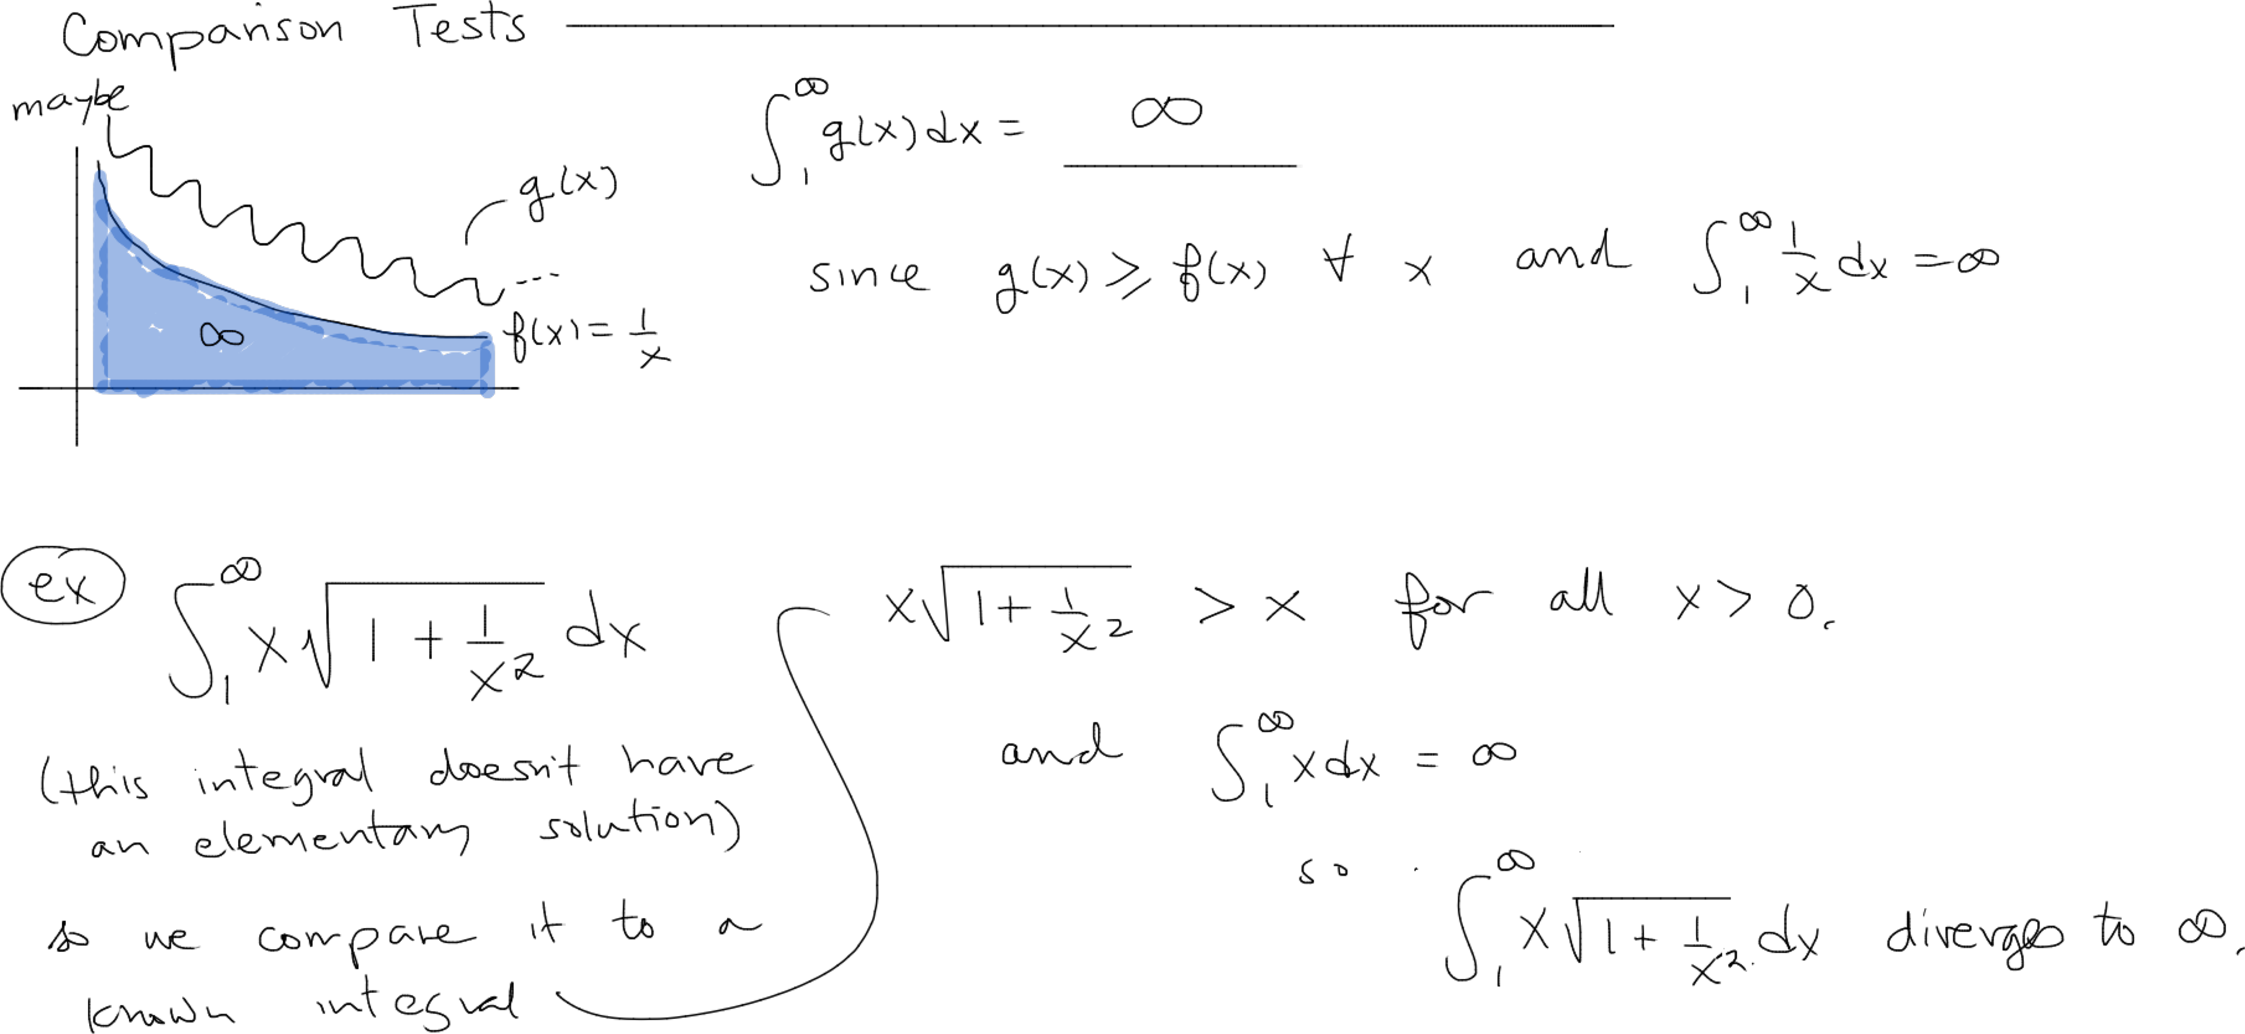 Comparison Tests
maybe
g(x)
...
f(x) = 1/x
∞
∫₁^∞ g(x) dx = ∞
since g(x) ≥ f(x) ∀ x and ∫₁^∞ 1/x dx = ∞
ex
∫₁^∞ x√(1 + 1/x²) dx
(this integral doesn't have
an elementary solution)
so we compare it to a
known integral
x√(1 + 1/x²) > x for all x > 0.
and ∫₁^∞ x dx = ∞
so
∫₁^∞ x√(1 + 1/x²) dx diverges to ∞.